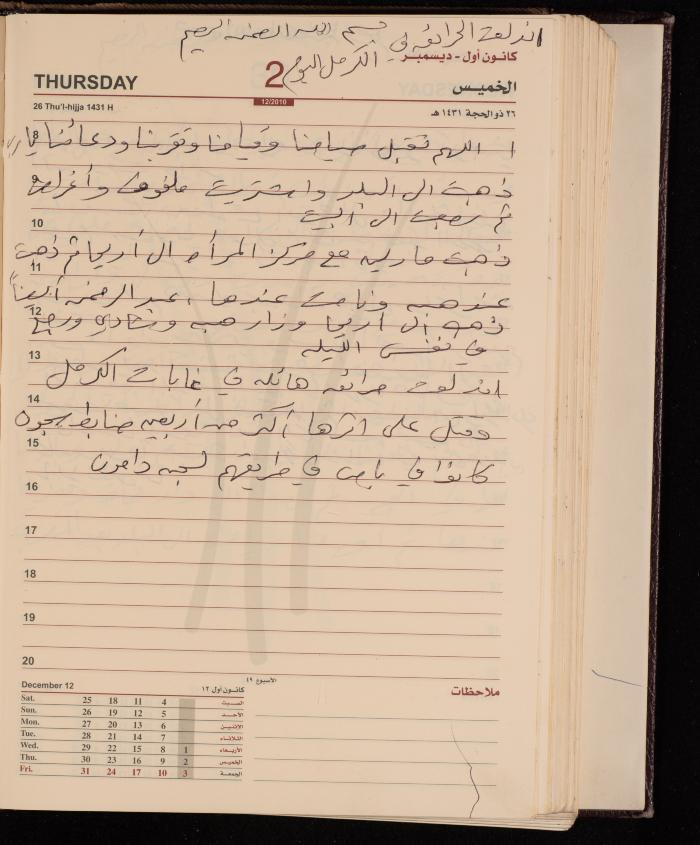 اندلعت الحرائق في بسم الله الرحمن الرحيم
الكرمل اليوم
كانون أول - ديسمبر
THURSDAY 2 الخميس
12/2010
26 Thu'l-hijja 1431 H ٢٦ ذو الحجة ١٤٣١ هـ
8 اللهم تقبل صيامنا وقيامنا وتقربنا ودعائنا يا رب
ذهبت الى البلد واشتريت ملفوف وأغراض
ثم رجعت الى البيت
10
ذهبت مع مركز المرأة الى أريحا ثم ذهبت
11
عند هبه ونامت عندها، عبد الرحمن أيضاً
12
ذهب الى أريحا وزار هبه وشادي ورجع
في نفس الليله
13
اندلعت حرائق هائله في غابات الكرمل
14
وقتل على اثرها أكثر من أربعين ضابط سجون
15
كانوا في باص في طريقهم لسجن دامون
16
17
18
19
20
December 12 كانون أول ١٢ الأسبوع ٤٩
ملاحظات
Sat. 25 18 11 4 السبت
Sun. 26 19 12 5 الأحد
Mon. 27 20 13 6 الاثنين
Tue. 28 21 14 7 الثلاثاء
Wed. 29 22 15 8 1 الأربعاء
Thu. 30 23 16 9 2 الخميس
Fri. 31 24 17 10 3 الجمعة